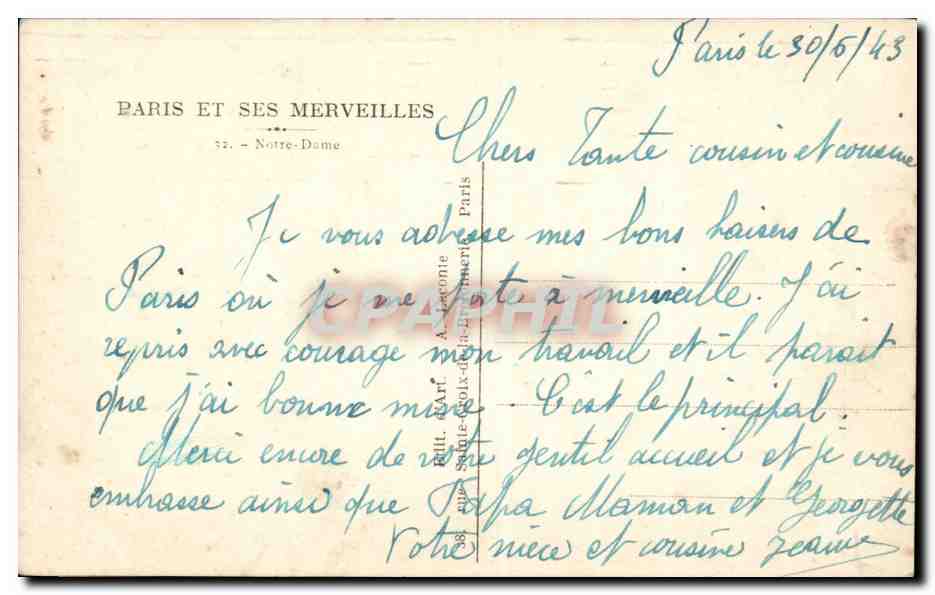 Paris le 30/6/43
PARIS ET SES MERVEILLES
32. - Notre-Dame
Chers Tante cousin et cousine
Je vous adresse mes bons baisers de
Paris où je me porte à merveille. J'ai
repris avec courage mon travail et il parait
que j'ai bonne mine. C'est le principal.
Merci encore de votre gentil accueil et je vous
embrasse ainsi que Papa Maman et Georgette
Votre nièce et cousine Jeanne
Edit. d'Art. A. Leconte
38, rue Sainte-Croix-de-la-Bretonnerie, Paris
CPAPHIL